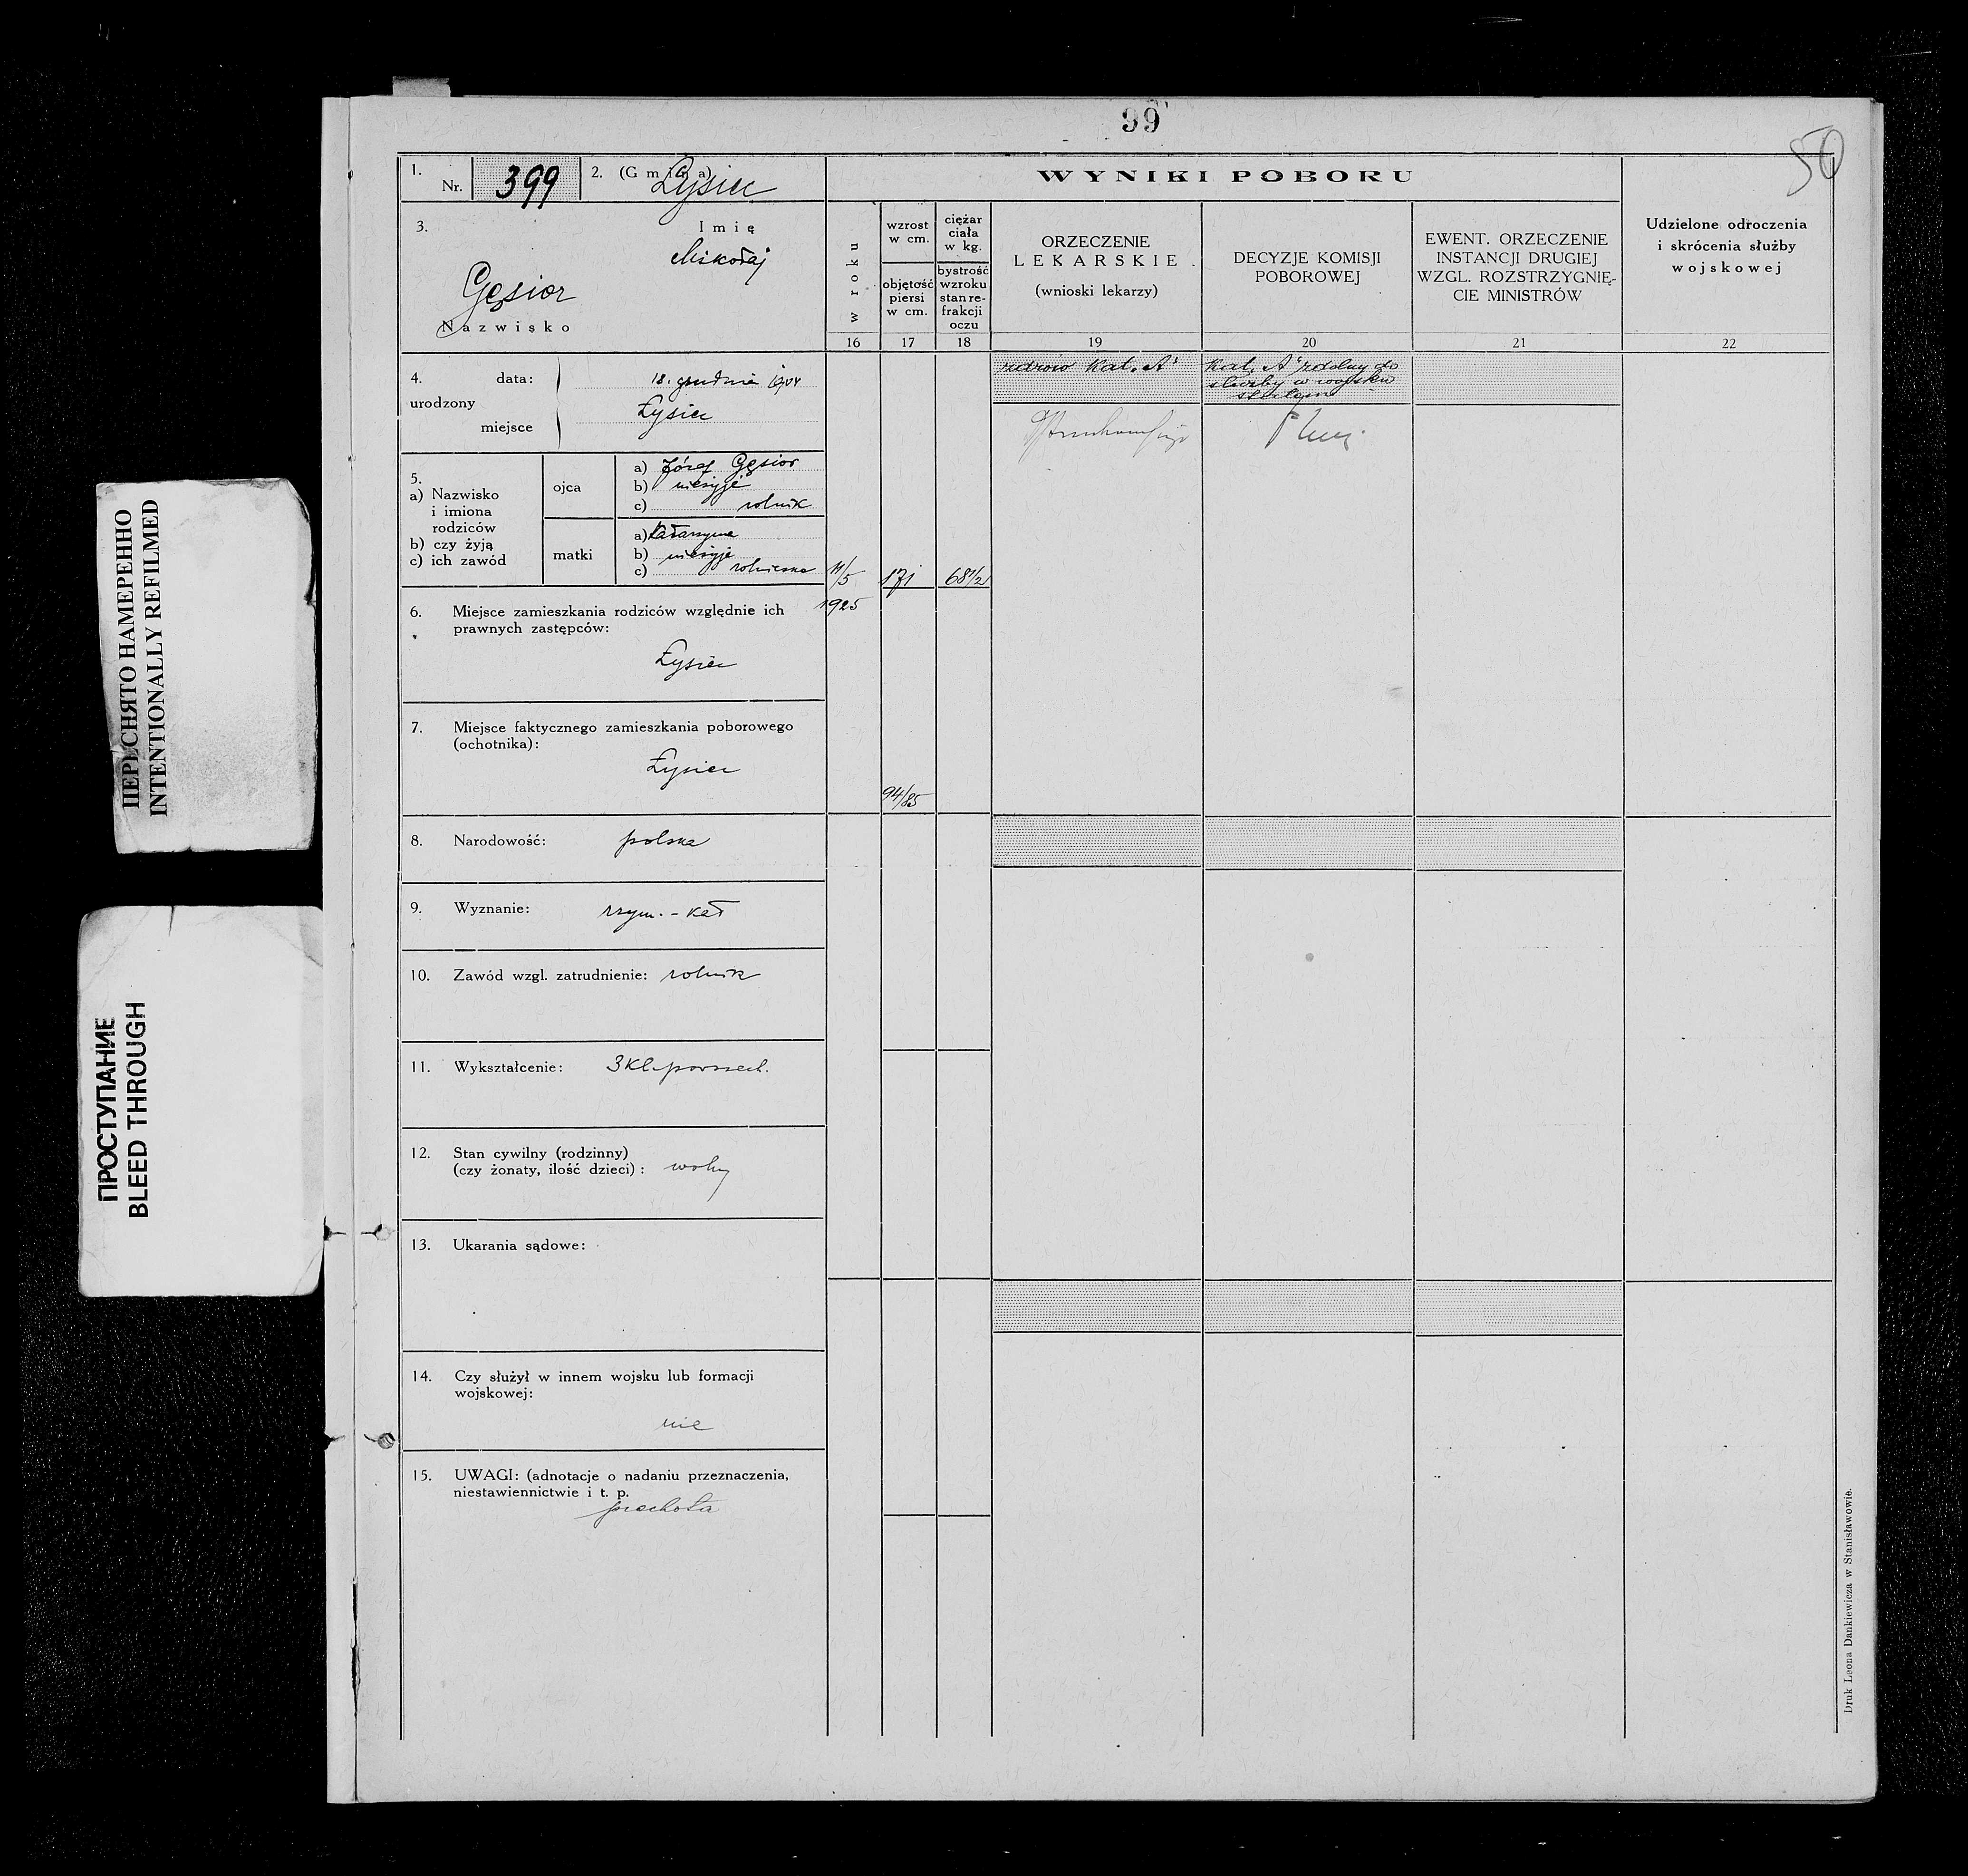 99
50
1.
Nr. 399
2. (Gmina) Łysiec
3.
Imię
Mikołaj
Gęsior
Nazwisko
WYNIKI POBORU
w roku
wzrost
w cm.
objętość
piersi
w cm.
ciężar
ciała
w kg.
bystrość
wzroku
stan re-
frakcji
oczu
ORZECZENIE
LEKARSKIE
(wnioski lekarzy)
DECYZJE KOMISJI
POBOROWEJ
EWENT. ORZECZENIE
INSTANCJI DRUGIEJ
WZGL. ROZSTRZYGNIĘ-
CIE MINISTRÓW
Udzielone odroczenia
i skrócenia służby
wojskowej
16 17 18 19 20 21 22
4.
urodzony
data: 18. grudnia 1904
miejsce Łysiec
5.
a) Nazwisko
i imiona
rodziców
b) czy żyją
c) ich zawód
ojca
a) Józef Gęsior
b) nieżyje
c) rolnik
matki
a) Katarzyna
b) nieżyje
c) rolniczka
11/5
1925
171
68 1/2
94/85
zdrów Kat. A"
Kat. A" zdolny do
służby w wojsku
stałem
6. Miejsce zamieszkania rodziców względnie ich
prawnych zastępców:
Łysiec
7. Miejsce faktycznego zamieszkania poborowego
(ochotnika):
Łysiec
8. Narodowość: polska
9. Wyznanie: rzym.-kat
10. Zawód wzgl. zatrudnienie: rolnik
11. Wykształcenie: 3 kl. powszech.
12. Stan cywilny (rodzinny)
(czy żonaty, ilość dzieci): wolny
13. Ukarania sądowe:
14. Czy służył w innem wojsku lub formacji
wojskowej:
nie
15. UWAGI: (adnotacje o nadaniu przeznaczenia,
niestawiennictwie i t. p.
piechota
Druk Leona Dankiewicza w Stanisławowie.
ПЕРЕСНЯТО НАМЕРЕННО
INTENTIONALLY REFILMED
ПРОСТУПАНИЕ
BLEED THROUGH